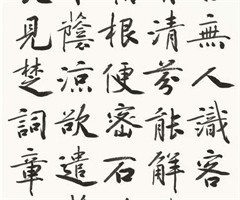 無人識客
清芬能解
根便密石
蔭涼欲遣
見楚詞章